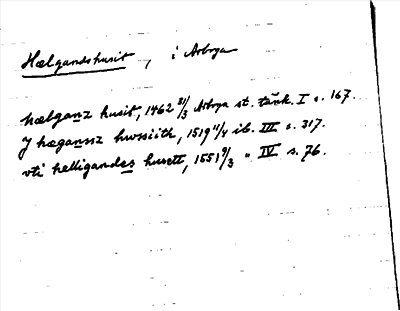 Hælgandshusit, i Arboga
hælganz husit, 1462 21/3 Arboga st. tänk. I s. 167.
J hæganssz hwssiith, 1519 11/4 ib. III s. 317.
vti helligandes husett, 1551 9/3 " IV s. 76.